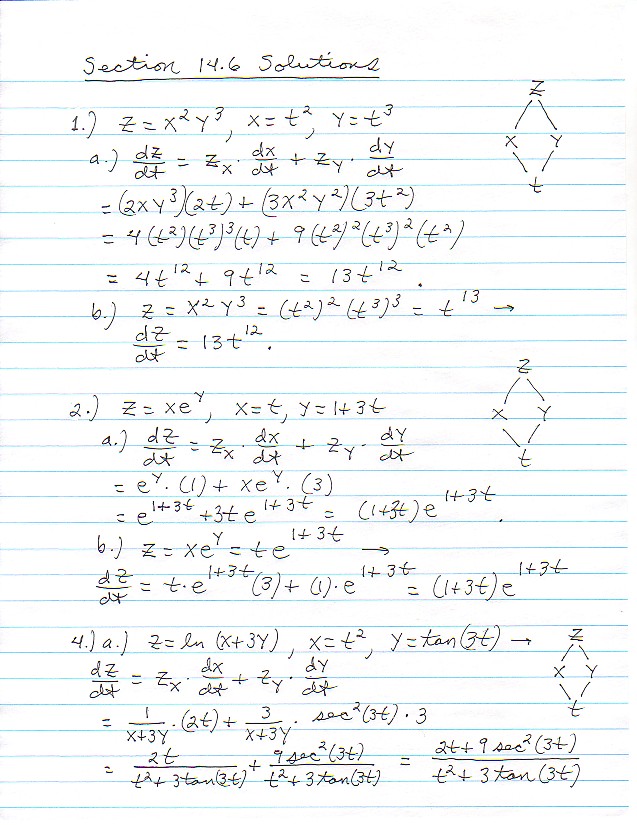 Section 14.6 Solutions
Z
1.) Z = X²Y³, X = t², Y = t³
X Y
a.) dZ/dt = Z_X · dX/dt + Z_Y · dY/dt
t
= (2XY³)(2t) + (3X²Y²)(3t²)
= 4(t²)(t³)³(t) + 9(t²)²(t³)²(t²)
= 4t¹² + 9t¹² = 13t¹².
b.) Z = X²Y³ = (t²)²(t³)³ = t¹³ →
dZ/dt = 13t¹².
Z
2.) Z = Xe^Y, X = t, Y = 1+3t
X Y
a.) dZ/dt = Z_X · dX/dt + Z_Y · dY/dt
t
= e^Y · (1) + Xe^Y · (3)
= e^(1+3t) + 3t e^(1+3t) = (1+3t) e^(1+3t).
b.) Z = Xe^Y = t e^(1+3t) →
dZ/dt = t · e^(1+3t) (3) + (1) · e^(1+3t) = (1+3t) e^(1+3t)
4.) a.) Z = ln (X+3Y), X = t², Y = tan(3t) →
Z
dZ/dt = Z_X · dX/dt + Z_Y · dY/dt
X Y
t
= 1/(X+3Y) · (2t) + 3/(X+3Y) · sec²(3t) · 3
= 2t/(t² + 3tan(3t)) + 9sec²(3t)/(t² + 3tan(3t)) = (2t + 9sec²(3t))/(t² + 3tan(3t))